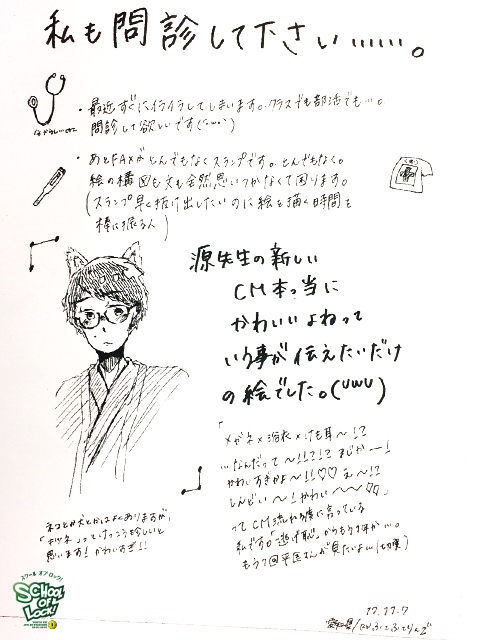 私も問診して下さい……。
・最近すぐにイライラしてしまいます。クラスでも部活でも…。
問診して欲しいです(´・ω・`)
・あとFAXがとんでもなくスランプです。とんでもなく。
絵の構図も文も全然思いつかなくて困ります。
(スランプ早く抜け出したいのに絵を描く時間を
棒に振る人)
源先生の新しい
CM本っ当に
かわいいよねって
いう事が伝えたいだけ
の絵でした。(UωU)
「メガネ×浴衣×けも耳〜!?
…なんだって〜!!?!? まじかー!
かわいすぎかよ〜!!♡♡ え〜!?
しんどい〜! かわい〜〜♡♡」
ってCM流れる度に言っている
私です。「逃げ恥」からもう1年か…。
もう1回平匡さんが見たいよ…(切実)
ネコとか犬とかはよくありますが、
「キツネ」ってけっこう珍しいと
思います! かわいすぎ!!
スクール オブ ロック!
SCHOOL OF LOCK!
17.11.7